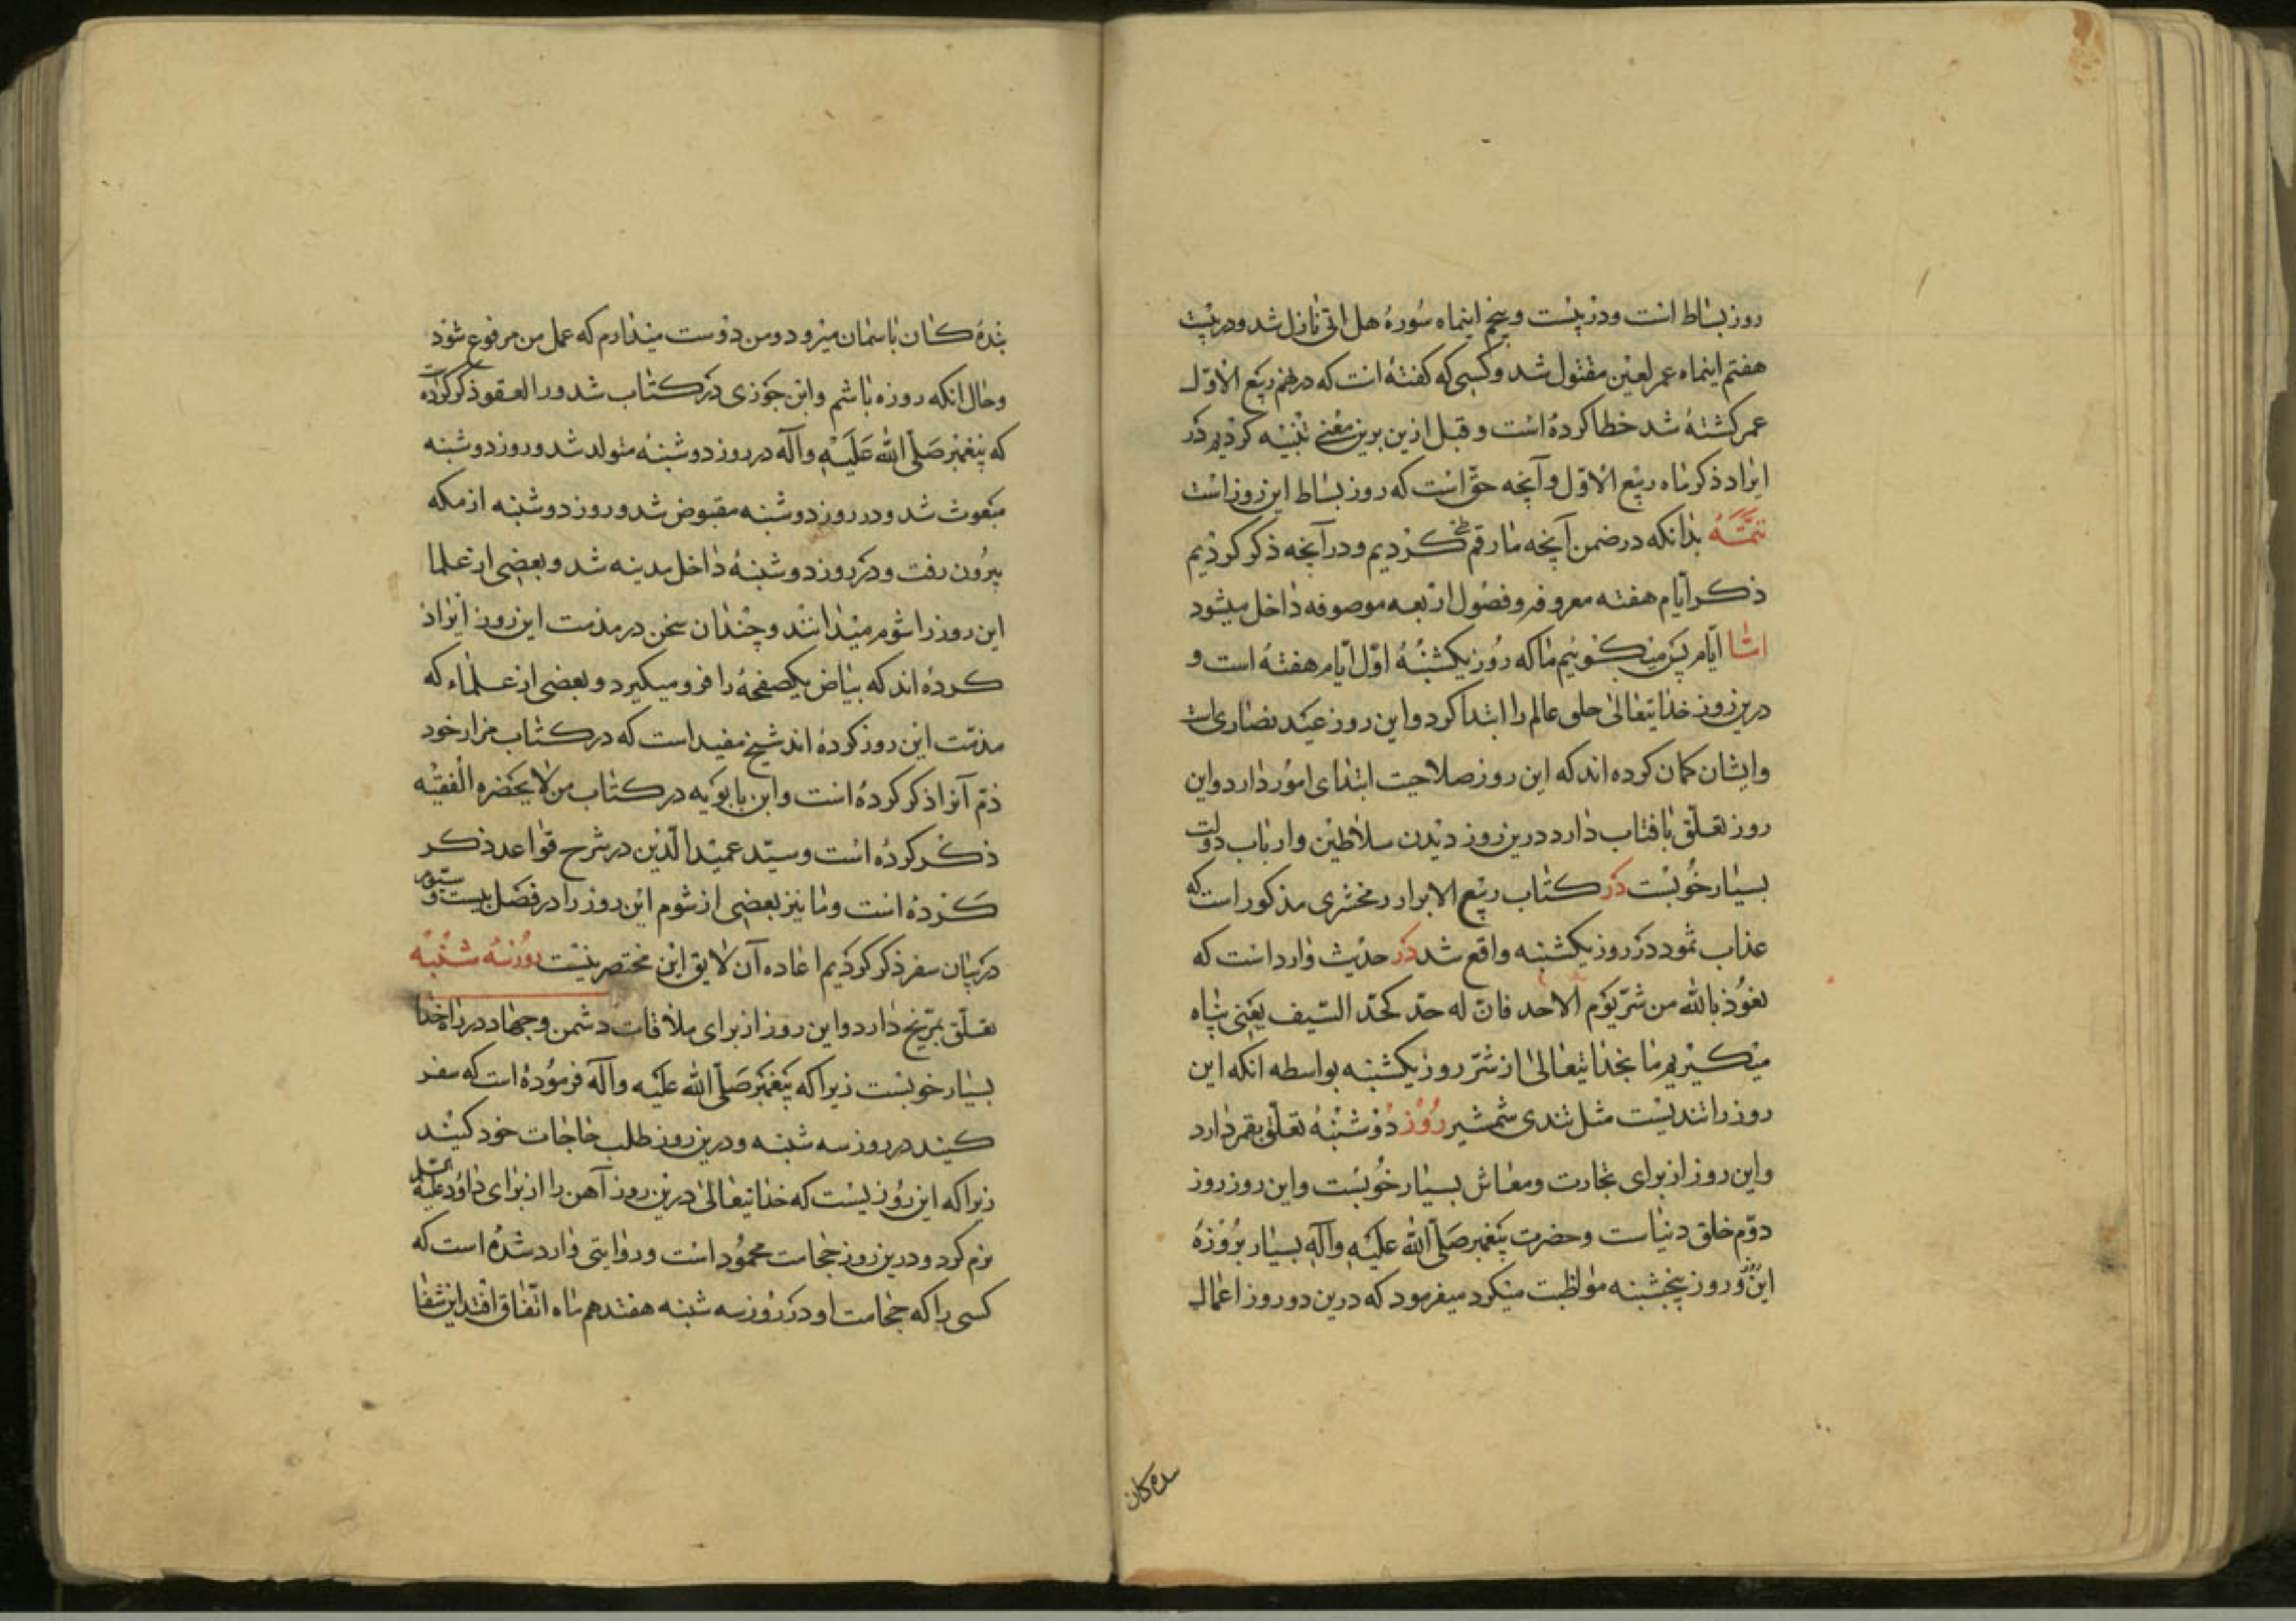 روز بساط است و در بیست و پنجم اینماه سُورهٔ هل اتی نازل شد و در بیست
هفتم اینماه عمر لعین مقتول شد و کسی که کفته است که در نهم ربیع الاوّل
عمر کشته شد خطا کرده است و قبل ازین برین معنی تنبیه کردیم در
ایراد ذکر ماه ربیع الاوّل و آنچه حقّ است که روز بساط این روز است
تتمّه بدانکه در ضمن آنچه ما رقم کردیم و در آنچه ذکر کردیم
ذکر ایّام هفته معروفه و فصُول اربعه موصوفه داخل میشود
امّا ایّام پس میکوئیم ما که رُوز یکشنبهُ اوّل ایّام هفته است و
درین روز خدایتعالی خلق عالم را ابتدا کرد و این روز عید نصاریاست
و ایشان کمان کرده اند که این روز صلاحیت ابتدای امُور دارد و این
روز تعلّق بافتاب دارد درین روز دیدن سلاطین و ارباب دولت
بسیار خُوبست در کتاب ربیع الابرار زمخشری مذکور است که
عذاب ثمود در روز یکشنبه واقع شد در حدیث وارد است که
نعُوذ بالله من شرّ یَوم الاحد فانّ له حدّ کحدّ السّیف یعنی پناه
میکیریم ما بخدایتعالی از شرّ روز یکشنبه بواسطه انکه این
روز را تندیست مثل تندی شمشیر رُوز دُوشنبهُ تعلّق بقمر دارد
و این روز از برای تجارت و معاش بسیار خُوبست و این روز روز
دوّم خلق دنیاست و حضرت پیغمبر صَلّی الله علیه و آله بسیار برُوزهُ
این روز و روز پنجشنبه مواظبت میکرد میفرمود که درین دو روز اعمال
بندهٔ کان باسمان میرود و من دوست میدارم که عمل من مرفوع شود
و حال انکه روزه باشم و ابن جوزی در کتاب شدور العقود ذکر کرده است
که پیغمبر صَلّی الله عَلَیْهِ و آله در روز دوشنبه متولد شد و روز دوشنبه
مبعوث شد و در روز دوشنبه مقبوض شد و روز دوشنبه از مکه
بیرُون رفت و در روز دوشنبهُ داخل مدینه شد و بعضی از علما
این روز را شوم میدانند و چندان سخن در مذمت این روز ایراد
کرده اند که بیاض یکصفحهُ را فرو میکیرد و بعضی از علماء که
مذمّت این روز کرده اند شیخ مفید است که در کتاب مزار خود
ذمّ آنرا ذکر کرده است و ابن بابوَیه در کتاب من لایحضره الفقیه
ذکر کرده است و سیّد عمید الدّین در شرح قواعد ذکر
کرده است و ما نیز بعضی از شوم این روز را در فصل بیست و سیّوم
در بیان سفر ذکر کردیم اعاده آن لایق این مختصر نیست روز سه شنبه
تعلّق بمرّیخ دارد و این روز از برای ملاقات دشمن و جهاد در راه خدا
بسیار خوبست زیرا که پیغمبر صَلّی الله علیه و آله فرموُده است که سفر
کنید در روز سه شنبه و درین روز طلب حاجات خود کنید
زیرا که این رُوزیست که خدایتعالی درین روز آهن را از برای داوُد علیه السّلم
نرم کرد و درین روز حجامت محمُود است و روایتی وارد شدهُ است که
کسی را که حجامت او در رُوز سه شنبه هفتدهم ماه اتّفاق افتد این شفا